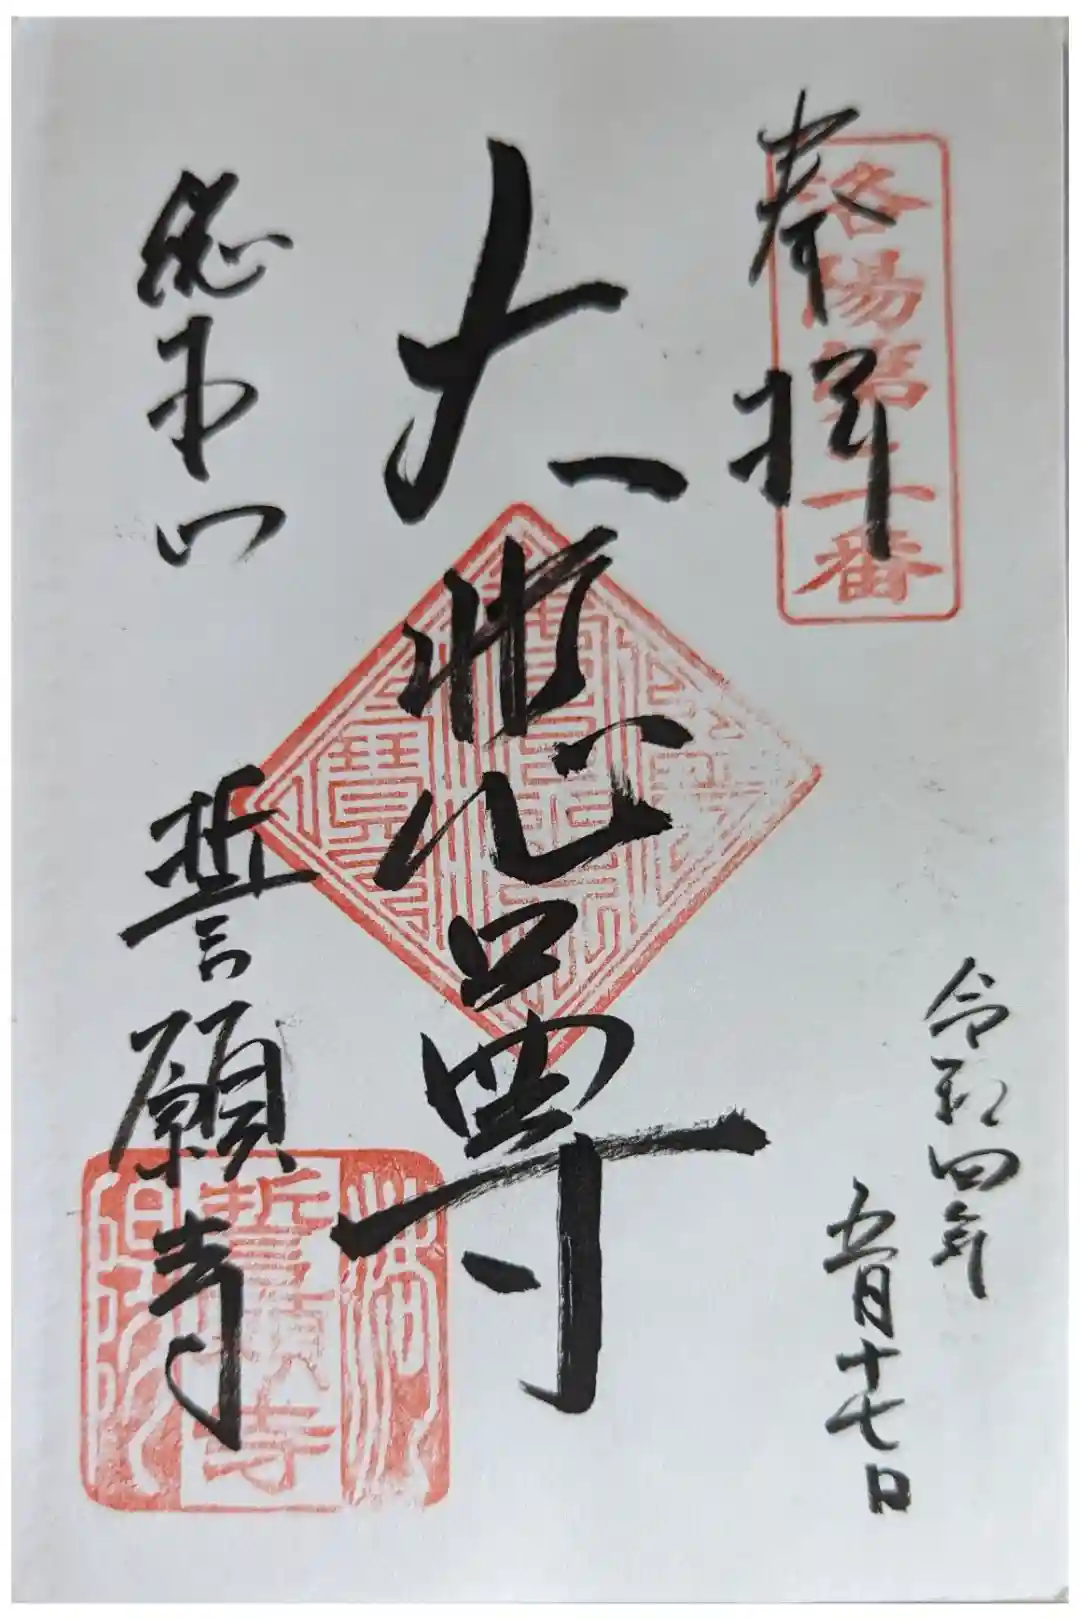 奉拝
洛陽第二番
令和四年
五月十七日
大悲尊
総本山
誓願寺
誓願寺